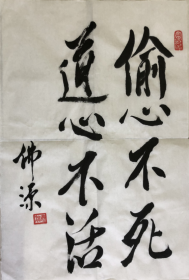 偷心不死
道心不活
佛源